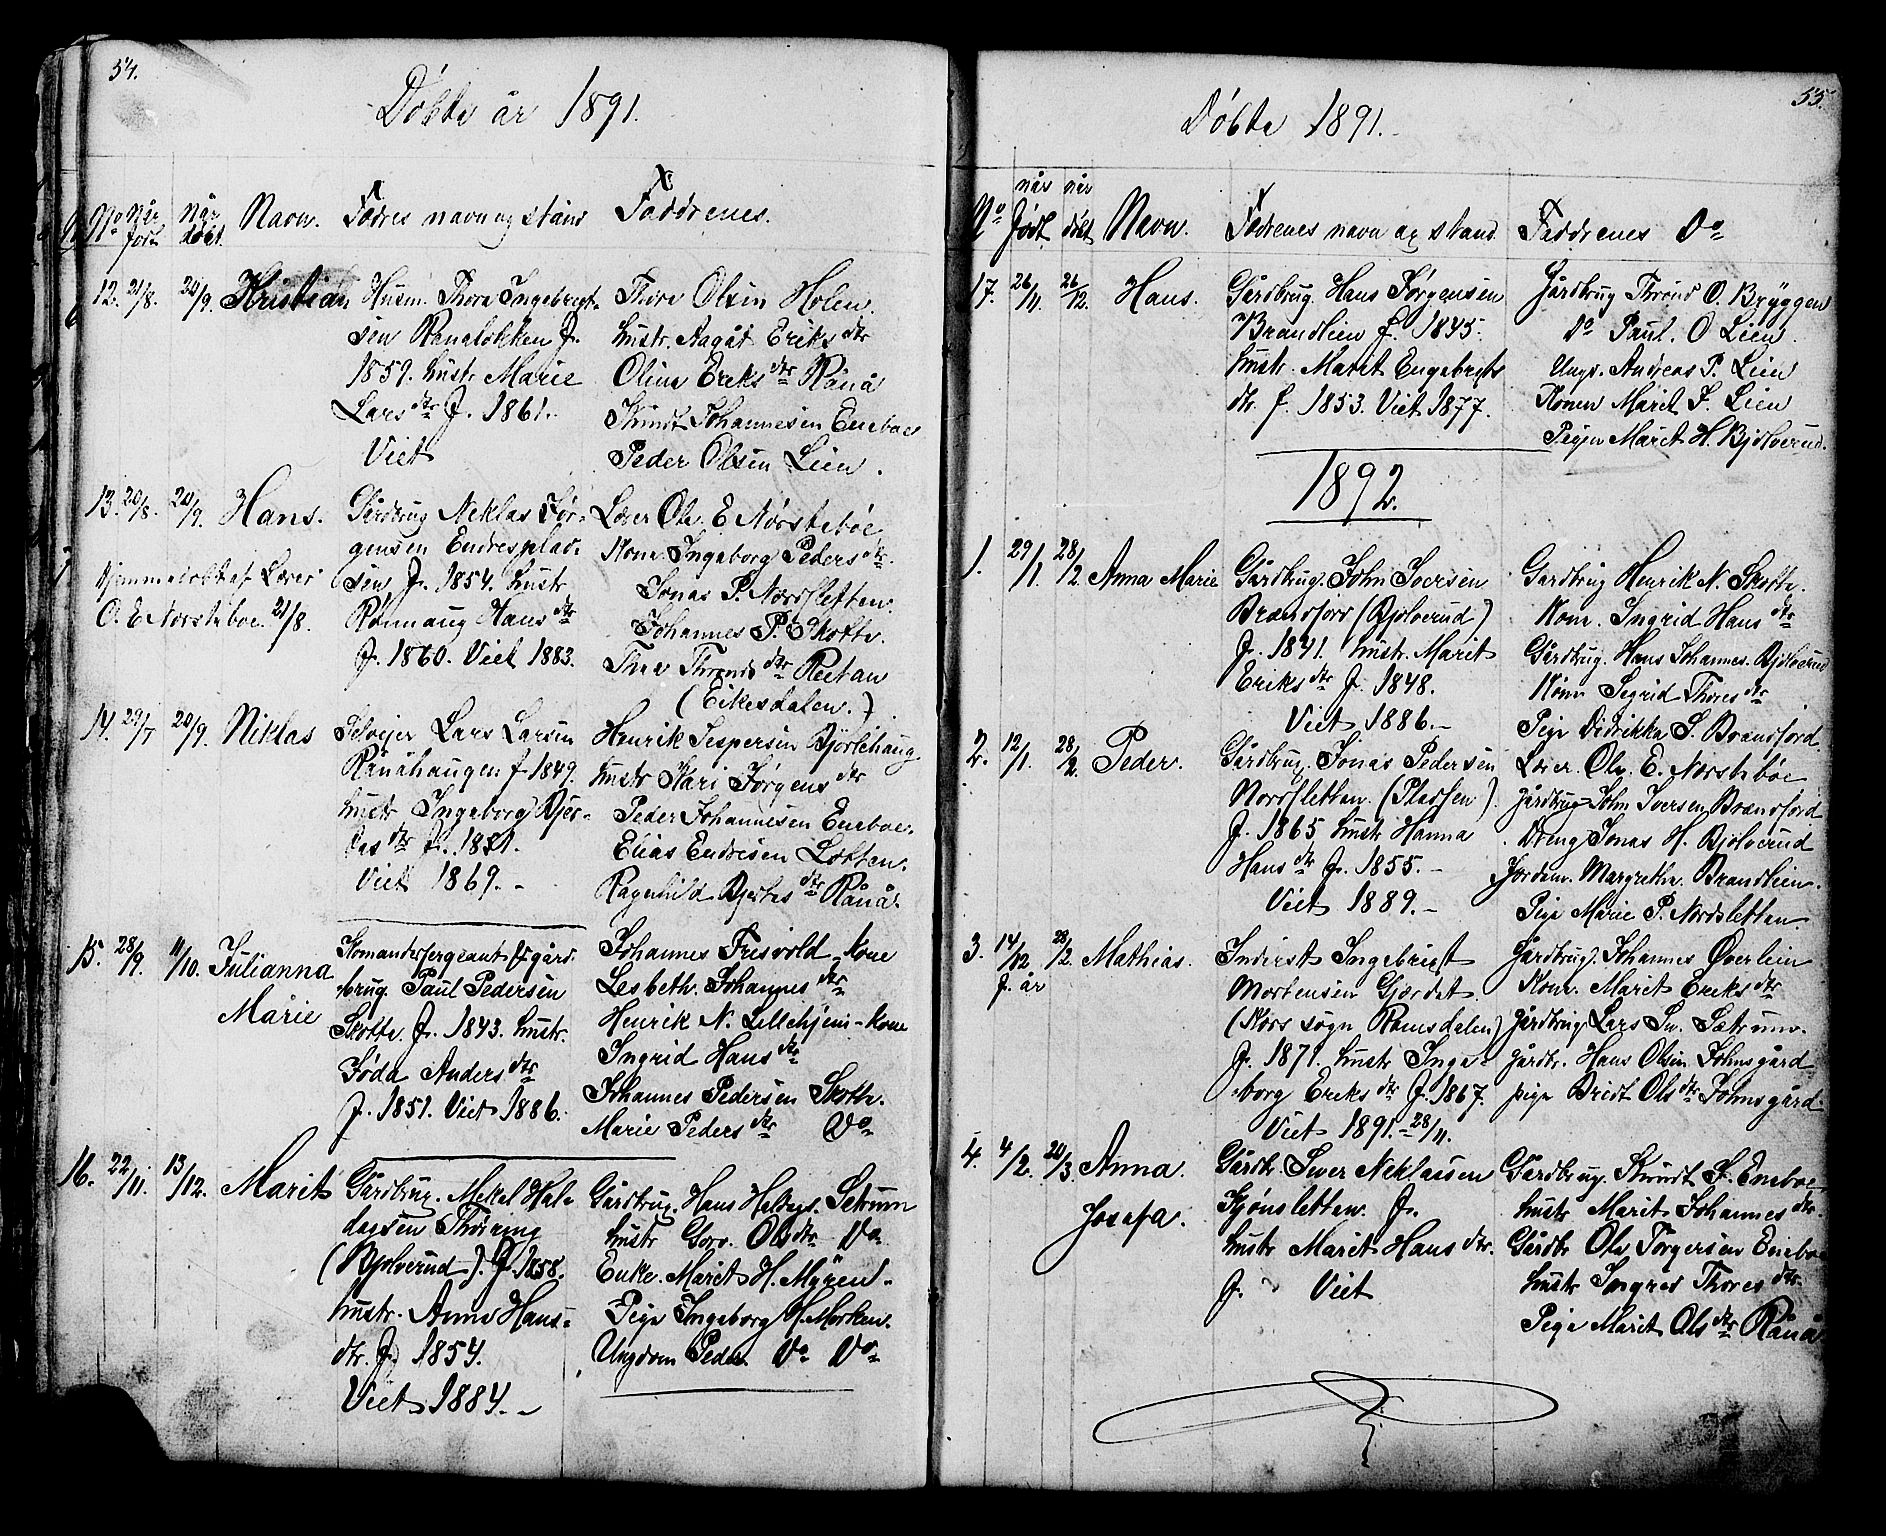 54.
Döbte år 1891.
No Når födt Når döbt. Navn. Fædres navn og stand Faddrenes.
12. 21/8. 20/9. Kristian Husm. Thore Ingebrigt-
sen Rånalökken f.
1859. hustr Marie
Lars dtr f. 1861.
Viet
Thore Olsen Holen.
hustr. Aagåt Eriks dtr
Oline Eriks dtr Rånå
Knudt Johannesen Eneboe
Peder Olsen Lien.
13. 20/8. 20/9. Hans.
Hjemmedöbt af Lærer
O. E Norsteboe. 21/8.
Gårdbrug Neklas Jör-
gensen Endresplad-
sen f. 1854. hustr
Rönnaug Hans dtr
f. 1860. Viet 1883.
Lærer Ole. E Nörsteböe
Kone Ingeborg Peders dtr.
Jonas P. Nordsletten.
Johannes P. Skotte.
Thrond dtr Reetan
(Eikesdalen.)
14. 29/7 20/9. Niklas
Selveier Lars Larsen
Rånåhaugen f 1849.
hustr Ingeborg Bjer-
tes dtr f. 1851.
Viet 1869.
Henrik Jespersen Bjorlehaug
hustr Kari Jörgens dtr
Peder Johannesen Eneboe.
Elias Endresen Lötten.
Ragnhild Bjertes dtr Rånå.
15. 28/9. 11/10. Julianna
Marie
Komandersergeant & gård-
brug. Paul Pedersen
Skotte. f. 1843. hustr.
Jöda Anders dtr
f. 1851. Viet 1886.
Johannes Fresvold kone
Lesbeth. Johannes dtr
Henrik N. Lillehjem - kone
Ingrid Hans dtr
Johannes Pedersen Skotte.
Marie Peders dtr Do
16. 22/11. 13/12. Marit
Gårdbrug. Mekel Hal-
dagsen Thöring
(Bjolverud). f. 1858.
hustr. Anne Hans-
dtr. f. 1854.
Viet 1884.
Gårdbrug. Hans Setrum
hustr Gorv. Ols dtr Do
Enke. Marit H. Myren.
Pige Ingeborg H. Morken.
Ungdom Peder Do Do
55.
Döbte 1891.
No når Födt når döbt Navn. Fædrenes navn og stand Faddrenes Do
17. 26/11. 26/12. Hans.
Gårdbrug. Hans Jörgensen
Brandlien f. 1845.
hustr. Marit Engebregts
dtr. f. 1853. Viet 1877.
Gårdbrug Thrond O. Bryggen
Do Paul. O Lien.
Ungs. Andreas P. Lien
Konen Marit J. Lien
Pigen Marit H. Bjolverud.
1892.
1. 29/1. 28/2 Anna Marie
Gårdbrug. John Iversen
Brandsford (Bjolverud)
f. 1841. hustr. Marit
Eriks dtr f. 1848.
Viet 1886.
Gardbrug Henrik N. Skotte.
Kone. Ingrid Hans dtr
Gårdbrug. Hans Johannes. Bjolverud
Köne Segrid Thores dtr
Pige Didrikka S. Brandsford.
2. 12/1. 28/2. Peder.
Gårdbrug. Jonas Pedersen
Nordsletten. (Pladsen).
f. 1865 hustr Hanna
Hans dtr f. 1855.
Viet 1889.
Lærer. Ole. E. Norsteböe
gårdbrug John Iversen Brandsford
Dreng Jonas H. Bjolverud
Jordem. Margrethe. Brandlien.
Pige Marie P. Nordsletten.
3. 14/12 f. år 28/2. Mathias.
Inderst Ingebrigt
Mortensen Gjerdet.
(Kors sogn Romsdalen)
f. 1871. hustr Inge-
borg Eriks dtr f. 1867.
Viet 1891. 28/11.
Gårdbrug. Johannes Överlien
Kone. Marit Eriks dtr
Gårdbrug Lars Sætrum.
Gårdbr. Hans Olsen Johnsgård
pige Bredt Ols dtr Johnsgård
4. 4/2. 20/3. Anna
Josefa.
Gårdbr Iver Neklassen
Kjönsletten. f.
hustr Marit Hans dtr.
f. Viet
Gårdbrug. Knudt J. Eneboe.
hustr Marit Johannes dtr.
Gårdbr Ole Torgersen Eneboe
hustr Ingrid Thores dtr.
Pige Marit Ols dtr Rånå